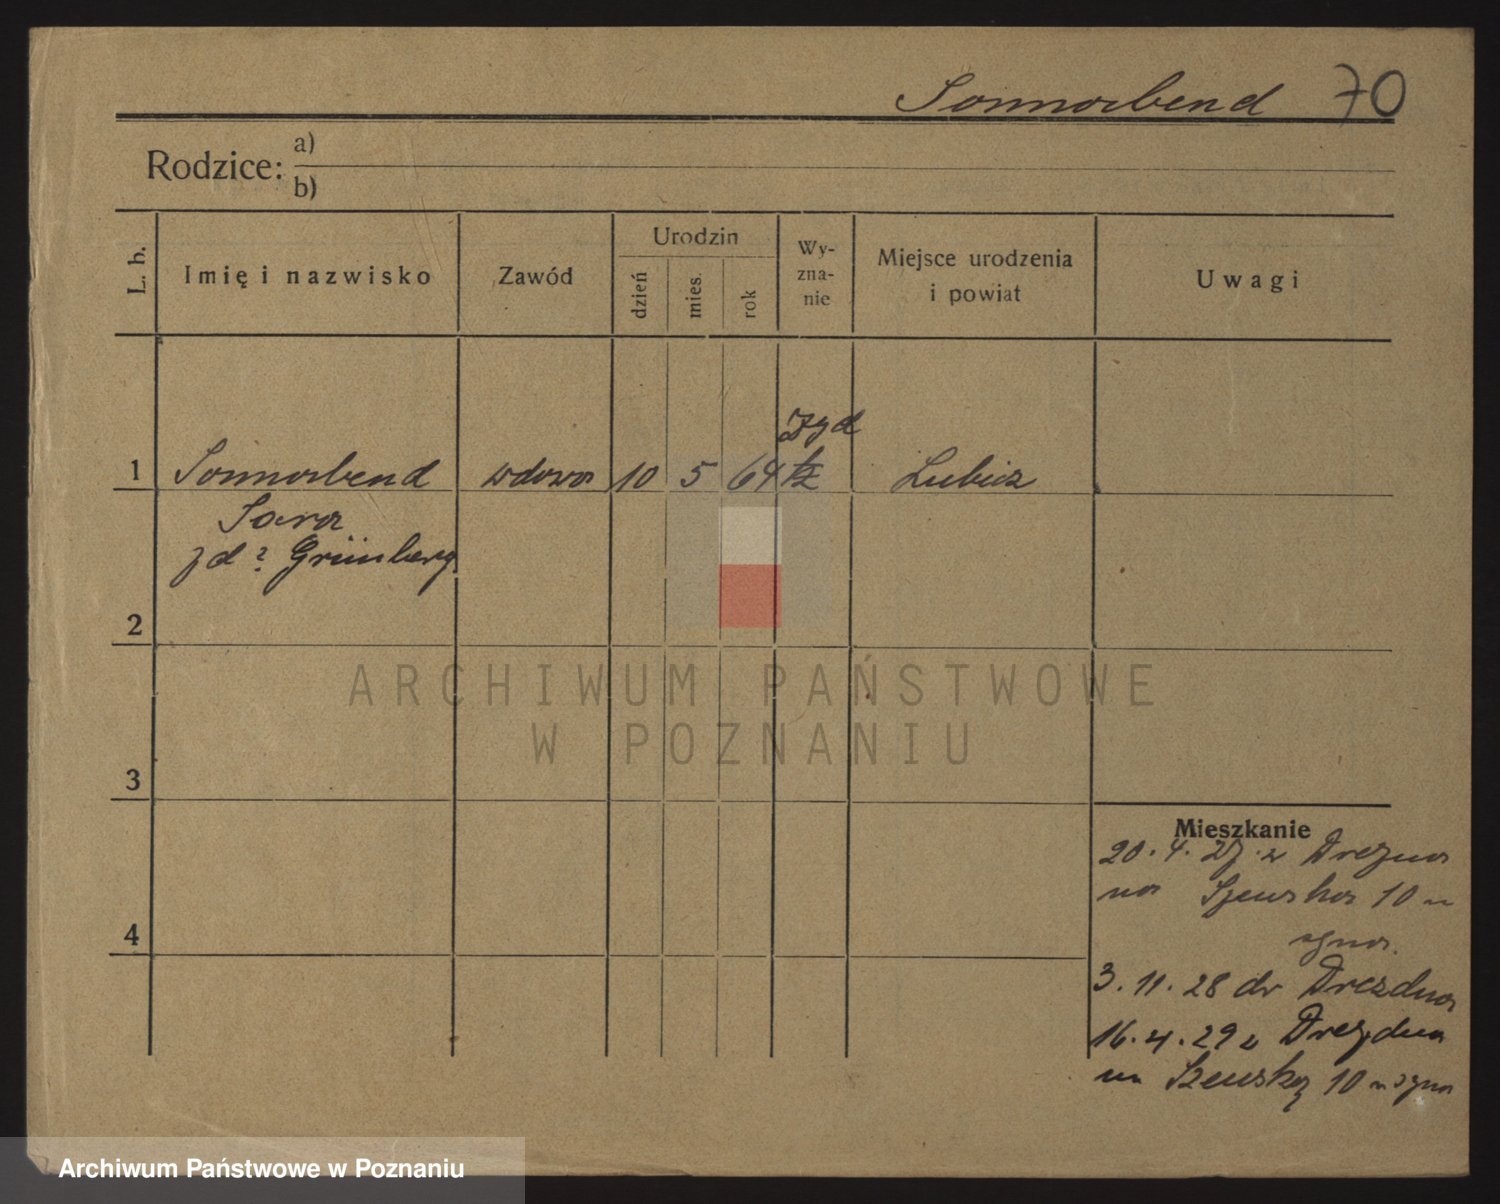 Sonnabend 70
Rodzice: a)
b)
L. b.
Imię i nazwisko
Zawód
Urodzin
dzień
mies.
rok
Wy-
zna-
nie
Miejsce urodzenia
i powiat
Uwagi
żyd
1 Sonnabend wdowa 10 5 64 Lubicz
Sara
zd? Grünberg
2
ARCHIWUM PAŃSTWOWE
W POZNANIU
3
Mieszkanie
20.4.27. z Drezna
na Szewska 10 u
syna.
4
3.11.28 do Drezdna
16.4.29 z Drezdna
na Szewską 10 u syna
Archiwum Państwowe w Poznaniu